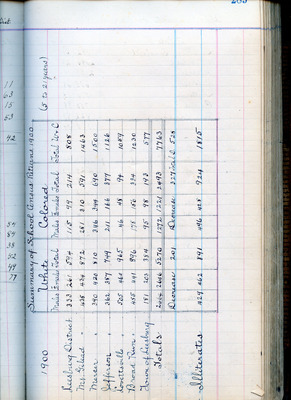 Summary of School Census Returns 1900.
1900 White Colored (5 to 21 years)
Male Female Total Male Female Total Total W & C
Leesburg District 333 261 594 115 99 214 808
Mt. Gilead 438 434 872 281 310 591 1463
Mercer 390 420 810 346 344 690 1500
Jefferson 362 387 749 211 166 377 1126
Lovettsville 505 460 965 46 48 94 1059
Broad Run 455 441 896 178 156 334 1230
Town of Leesburg 181 203 384 95 98 193 577
Totals 2664 2606 5270 1272 1221 2493 7763
Decrease 201 Decrease 327 528
Illiterates 429 462 891 496 428 924 1815
11
53
15
53
42
54
38
52
77